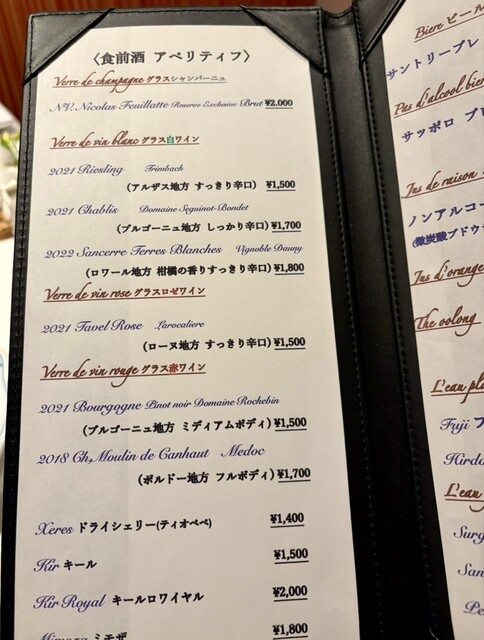 〈食前酒 アペリティフ〉
Verre de champagne グラスシャンパーニュ
N.V. Nicolas Feuillatte Reserve Exclusive Brut ¥2.000
Verre de vin blanc グラス白ワイン
2021 Riesling Trimbach
(アルザス地方 すっきり辛口) ¥1,500
2021 Chablis Domaine Seguinot-Bondet
(ブルゴーニュ地方 しっかり辛口) ¥1,700
2022 Sancerre Terres Blanches Vignoble Dauny
(ロワール地方 柑橘の香りすっきり辛口) ¥1,800
Verre de vin rose グラスロゼワイン
2021 Tavel Rose Larocaliere
(ローヌ地方 すっきり辛口) ¥1,500
Verre de vin rouge グラス赤ワイン
2021 Bourgogne Pinot noir Domaine Rochebin
(ブルゴーニュ地方 ミディアムボディ) ¥1,500
2018 Ch,Moulin de Canhaut Medoc
(ボルドー地方 フルボディ) ¥1,700
Xeres ドライシェリー(ティオペペ) ¥1,400
Kir キール ¥1,500
Kir Royal キールロワイヤル ¥2,000
Mimoza ミモザ ¥1,800
Biere ビール
サントリープレ
Pas d'alcool bier
サッポロ プレ
Jus de raison
ノンアルコー
(微炭酸ブドウ
Jus d'orange
The oolong
L'eau pla
Fuji フ
Hirdo
L'eau
Surg
San
Pe